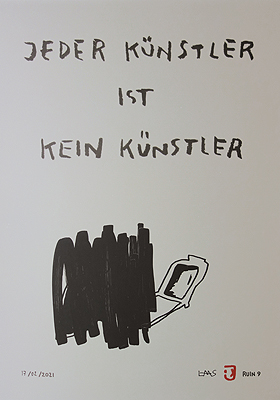 JEDER KÜNSTLER
IST
KEIN KÜNSTLER
LAAS
RUIN 9